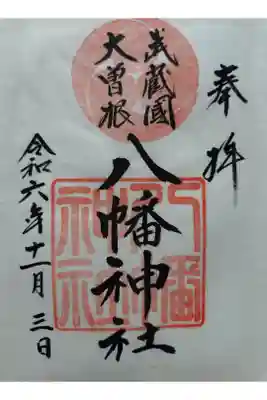 奉拝
武蔵國
大曽根
八幡神社
八幡
神社
令和六年十一月三日